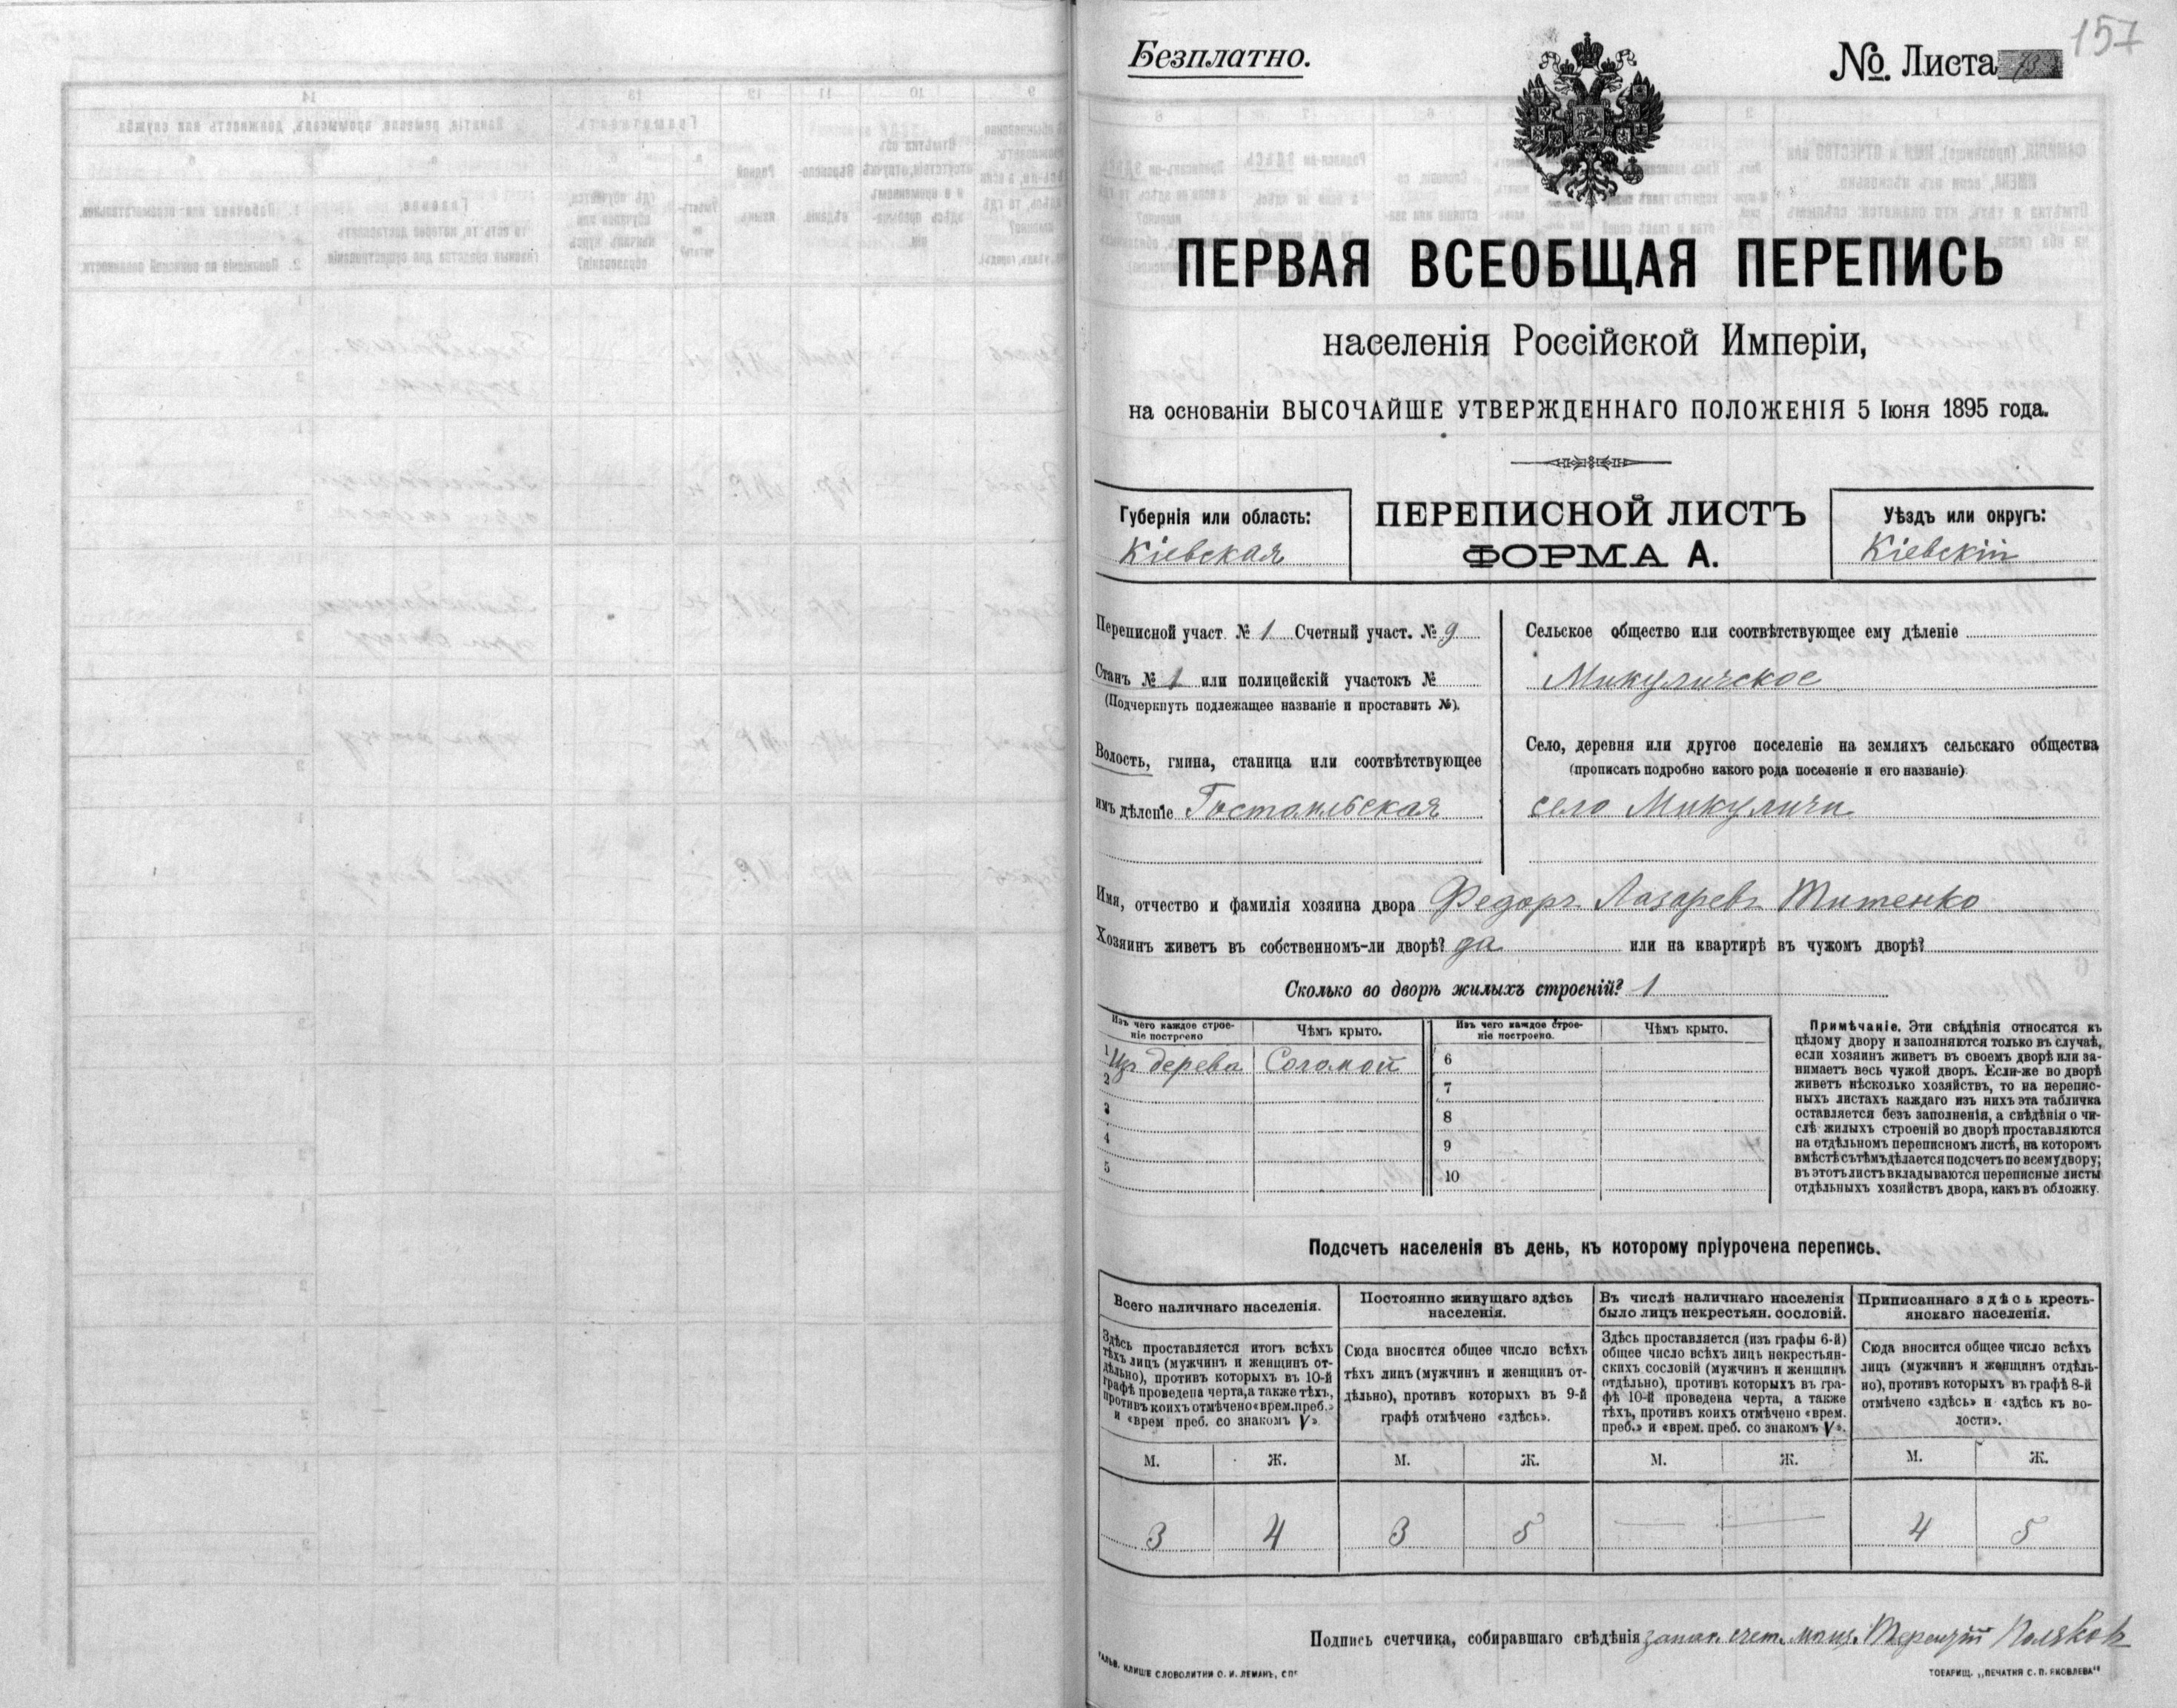 157
Безплатно.
№ Листа
ПЕРВАЯ ВСЕОБЩАЯ ПЕРЕПИСЬ
населенія Россійской Имперіи,
на основаніи ВЫСОЧАЙШЕ УТВЕРЖДЕННАГО ПОЛОЖЕНІЯ 5 Іюня 1895 года.
Губернія или область:
Кіевская
ПЕРЕПИСНОЙ ЛИСТЪ
ФОРМА А.
Уѣздъ или округъ:
Кіевскій
Переписной участ. № 1 Счетный участ. № 9
Станъ № 1 или полицейскій участокъ №
(Подчеркнуть подлежащее названіе и проставить №).
Волость, гмина, станица или соотвѣтствующее
имъ дѣленіе Гостомльская
Сельское общество или соотвѣтствующее ему дѣленіе
Микуличское
Село, деревня или другое поселеніе на земляхъ сельскаго общества
(прописать подробно какого рода поселеніе и его названіе)
село Микуличи
Имя, отчество и фамилія хозяина двора Федоръ Лазаревъ Титенко
Хозяинъ живетъ въ собственномъ-ли дворѣ? да или на квартирѣ въ чужомъ дворѣ?
Сколько во дворѣ жилыхъ строеній? 1
Изъ чего каждое строе-
ніе построено
Чѣмъ крыто.
Изъ чего каждое строе-
ніе построено.
Чѣмъ крыто.
1 Изъ дерева Соломой 6
2 7
3 8
4 9
5 10
Примѣчаніе. Эти свѣдѣнія относятся къ
цѣлому двору и заполняются только въ случаѣ,
если хозяинъ живетъ въ своемъ дворѣ или за-
нимаетъ весь чужой дворъ. Если-же во дворѣ
живетъ нѣсколько хозяйствъ, то на перепис-
ныхъ листахъ каждаго изъ нихъ эта табличка
оставляется безъ заполненія, а свѣдѣнія о чи-
слѣ жилыхъ строеній во дворѣ проставляются
на отдѣльномъ переписномъ листѣ, на которомъ
вмѣстѣ съ тѣмъ дѣлается подсчетъ по всему двору;
въ этотъ листъ вкладываются переписные листы
отдѣльныхъ хозяйствъ двора, какъ въ обложку.
Подсчетъ населенія въ день, къ которому пріурочена перепись.
Всего наличнаго населенія.
Здѣсь проставляется итогъ всѣхъ
тѣхъ лицъ (мужчинъ и женщинъ от-
дѣльно), противъ которыхъ въ 10-й
графѣ проведена черта, а также тѣхъ,
противъ коихъ отмѣчено «врем. преб.»
и «врем преб. со знакомъ V».
Постоянно живущаго здѣсь
населенія.
Сюда вносится общее число всѣхъ
тѣхъ лицъ (мужчинъ и женщинъ от-
дѣльно), противъ которыхъ въ 9-й
графѣ отмѣчено «здѣсь».
Въ числѣ наличнаго населенія
было лицъ некрестьян. сословій.
Здѣсь проставляется (изъ графы 6-й)
общее число всѣхъ лицъ некрестьян-
скихъ сословій (мужчинъ и женщинъ
отдѣльно), противъ которыхъ въ гра-
фѣ 10-й проведена черта, а также
тѣхъ, противъ коихъ отмѣчено «врем.
преб.» и «врем. преб. со знакомъ V».
Приписаннаго здѣсь кресть-
янскаго населенія.
Сюда вносится общее число всѣхъ
лицъ (мужчинъ и женщинъ отдѣль-
но), противъ которыхъ въ графѣ 8-й
отмѣчено «здѣсь» и «здѣсь къ во-
лости».
М. Ж. М. Ж. М. Ж. М. Ж.
3 4 3 5 — — 4 5
Подпись счетчика, собиравшаго свѣдѣнія запас. счет. Терентій Поляков
ГАЛЬВ. КЛИШЕ СЛОВОЛИТНИ О. И. ЛЕМАНЪ, СПБ
ТОВАРИЩ. „ПЕЧАТНЯ С. П. ЯКОВЛЕВА"